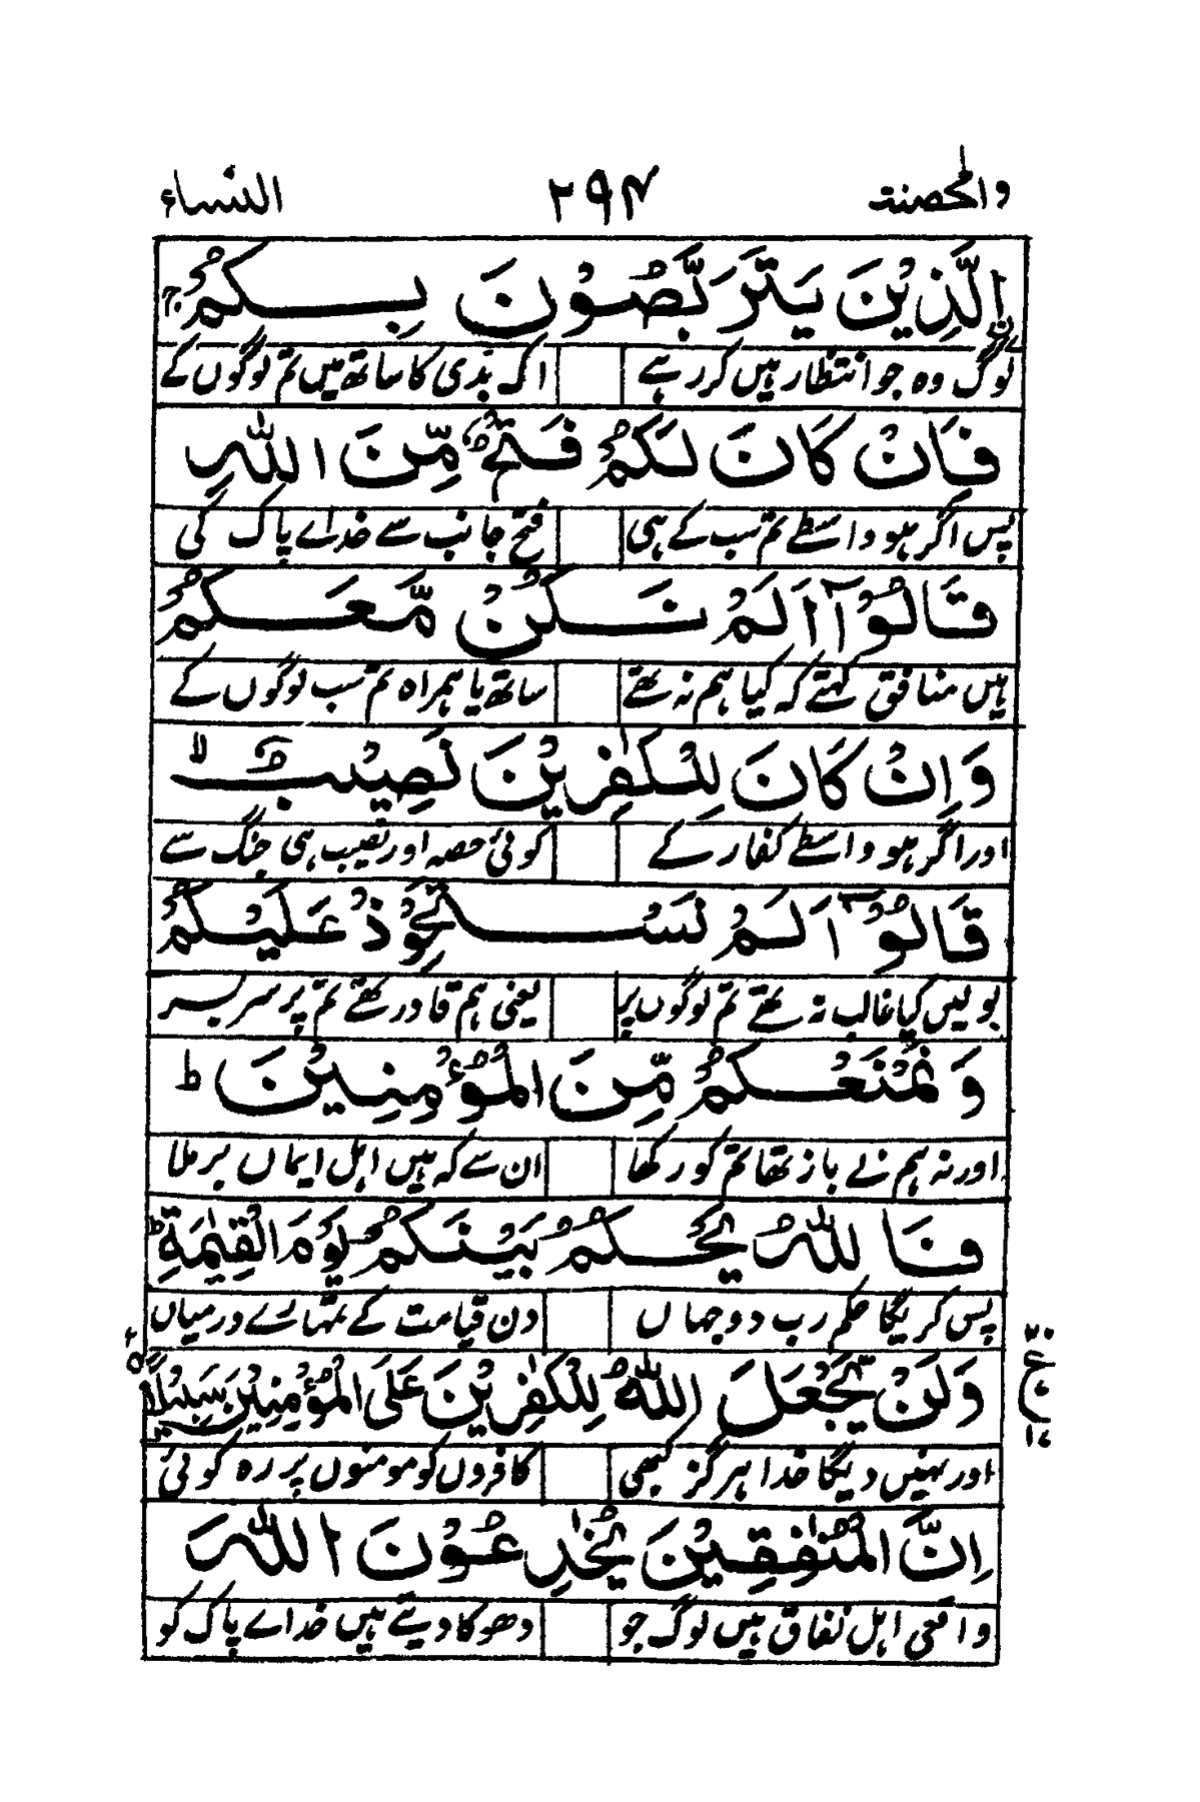 والمحصنت ۲۹۴ النساء
الَّذِيْنَ يَتَرَبَّصُوْنَ بِكُمْ ج
لوگ وہ جو انتظار ہیں کر رہے اک بدی کا ساتھ میں تم لوگوں کے
فَاِنْ كَانَ لَكُمْ فَتْحٌ مِّنَ اللّٰهِ
پس اگر ہو واسطے تم سب کے ہی فتح جانب سے خداے پاک کی
قَالُوْۤا اَلَمْ نَكُنْ مَّعَكُمْ
ہیں منافق کہتے کہ کیا ہم نہ تھے ساتھ یا ہمراہ تم سب لوگوں کے
وَاِنْ كَانَ لِلْكٰفِرِيْنَ نَصِيْبٌ لا
اور اگر ہو واسطے کفار کے کوئی حصہ اور نصیب ہی جنگ سے
قَالُوْۤا اَلَمْ نَسْتَحْوِذْ عَلَيْكُمْ
بولیں کیا غالب نہ تھے تم لوگوں پر یعنی ہم قادر تھے تم پر سربسر
وَنَمْنَعْكُمْ مِّنَ الْمُؤْمِنِيْنَ ط
اور نہ ہم نے باز تھا تم کو رکھا ان سے کہ ہیں اہل ایماں برملا
فَاللّٰهُ يَحْكُمُ بَيْنَكُمْ يَوْمَ الْقِيٰمَةِ ط
پس کریگا حکم رب دوجہاں دن قیامت کے تمہارے درمیاں
وَلَنْ يَّجْعَلَ اللّٰهُ لِلْكٰفِرِيْنَ عَلَى الْمُؤْمِنِيْنَ سَبِيْلًا
ع
اور نہیں دیگا خدا ہرگز کبھی کافروں کو مومنوں پر رہ کوئی
اِنَّ الْمُنٰفِقِيْنَ يُخٰدِعُوْنَ اللّٰهَ
واقعی اہل نفاق ہیں لوگ جو دھوکا دیتے ہیں خداے پاک کو